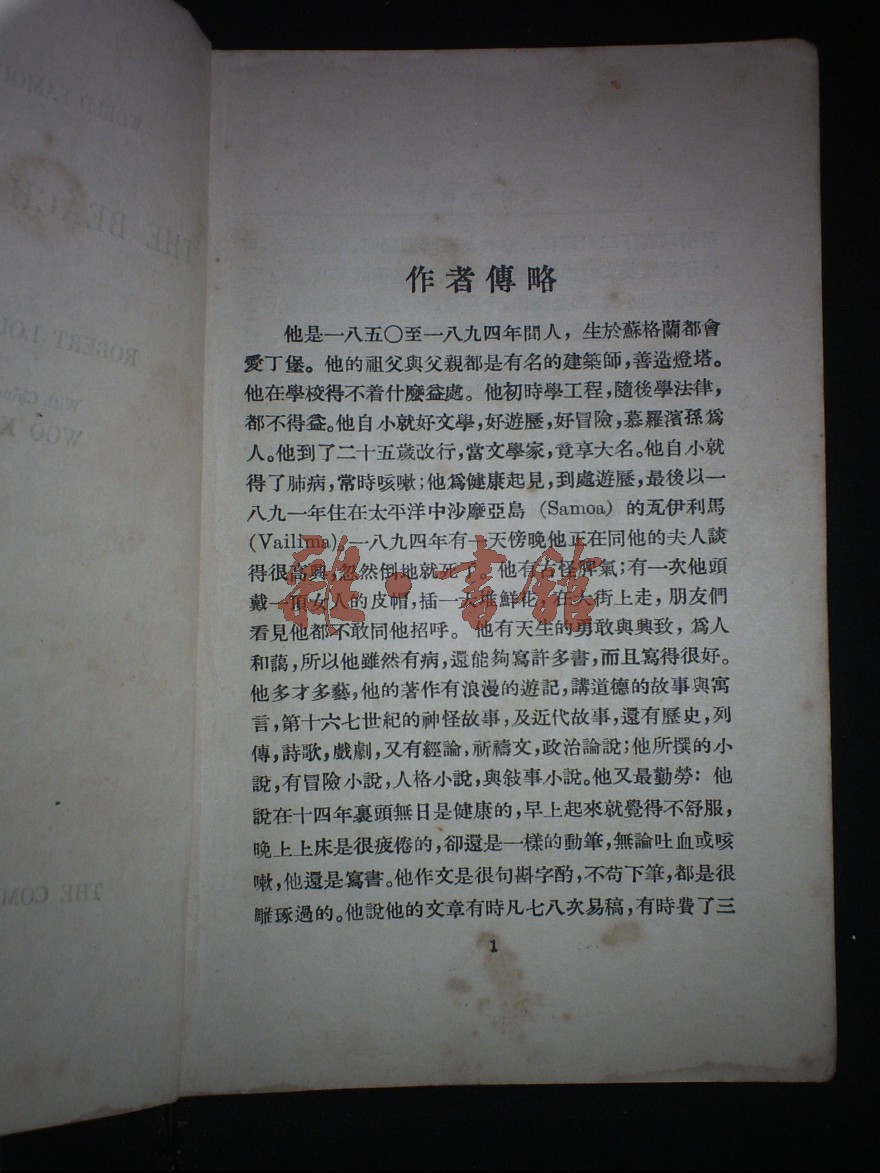 作者傳略
他是一八五〇至一八九四年間人，生於蘇格蘭都會
愛丁堡。他的祖父與父親都是有名的建築師，善造燈塔。
他在學校得不着什麼益處。他初時學工程，隨後學法律，
都不得益。他自小就好文學，好遊歷，好冒險，慕羅濱孫爲
人。他到了二十五歲改行，當文學家，竟享大名。他自小就
得了肺病，常時咳嗽；他爲健康起見，到處遊歷，最後以一
八九一年住在太平洋中沙摩亞島 (Samoa) 的瓦伊利馬
(Vailima)。一八九四年有一天傍晚他正在同他的夫人談
得很高興，忽然倒地就死了。他有古怪脾氣；有一次他頭
戴一頂女人的皮帽，插一大堆鮮花，在大街上走，朋友們
看見他都不敢同他招呼。他有天生的勇敢與興致，爲人
和藹，所以他雖然有病，還能夠寫許多書，而且寫得很好。
他多才多藝，他的著作有浪漫的遊記，講道德的故事與寓
言，第十六七世紀的神怪故事，及近代故事，還有歷史，列
傳，詩歌，戲劇，又有經論，祈禱文，政治論說；他所撰的小
說，有冒險小說，人格小說，與敍事小說。他又最勤勞：他
說在十四年裏頭無日是健康的，早上起來就覺得不舒服，
晚上上床是很疲倦的，卻還是一樣的動筆，無論吐血或咳
嗽，他還是寫書。他作文是很句斟字酌，不苟下筆，都是很
雕琢過的。他說他的文章有時凡七八次易稿，有時費了三
1
雜·書館
THE BEACH
ROBERT LOU
WOO K
THE COM